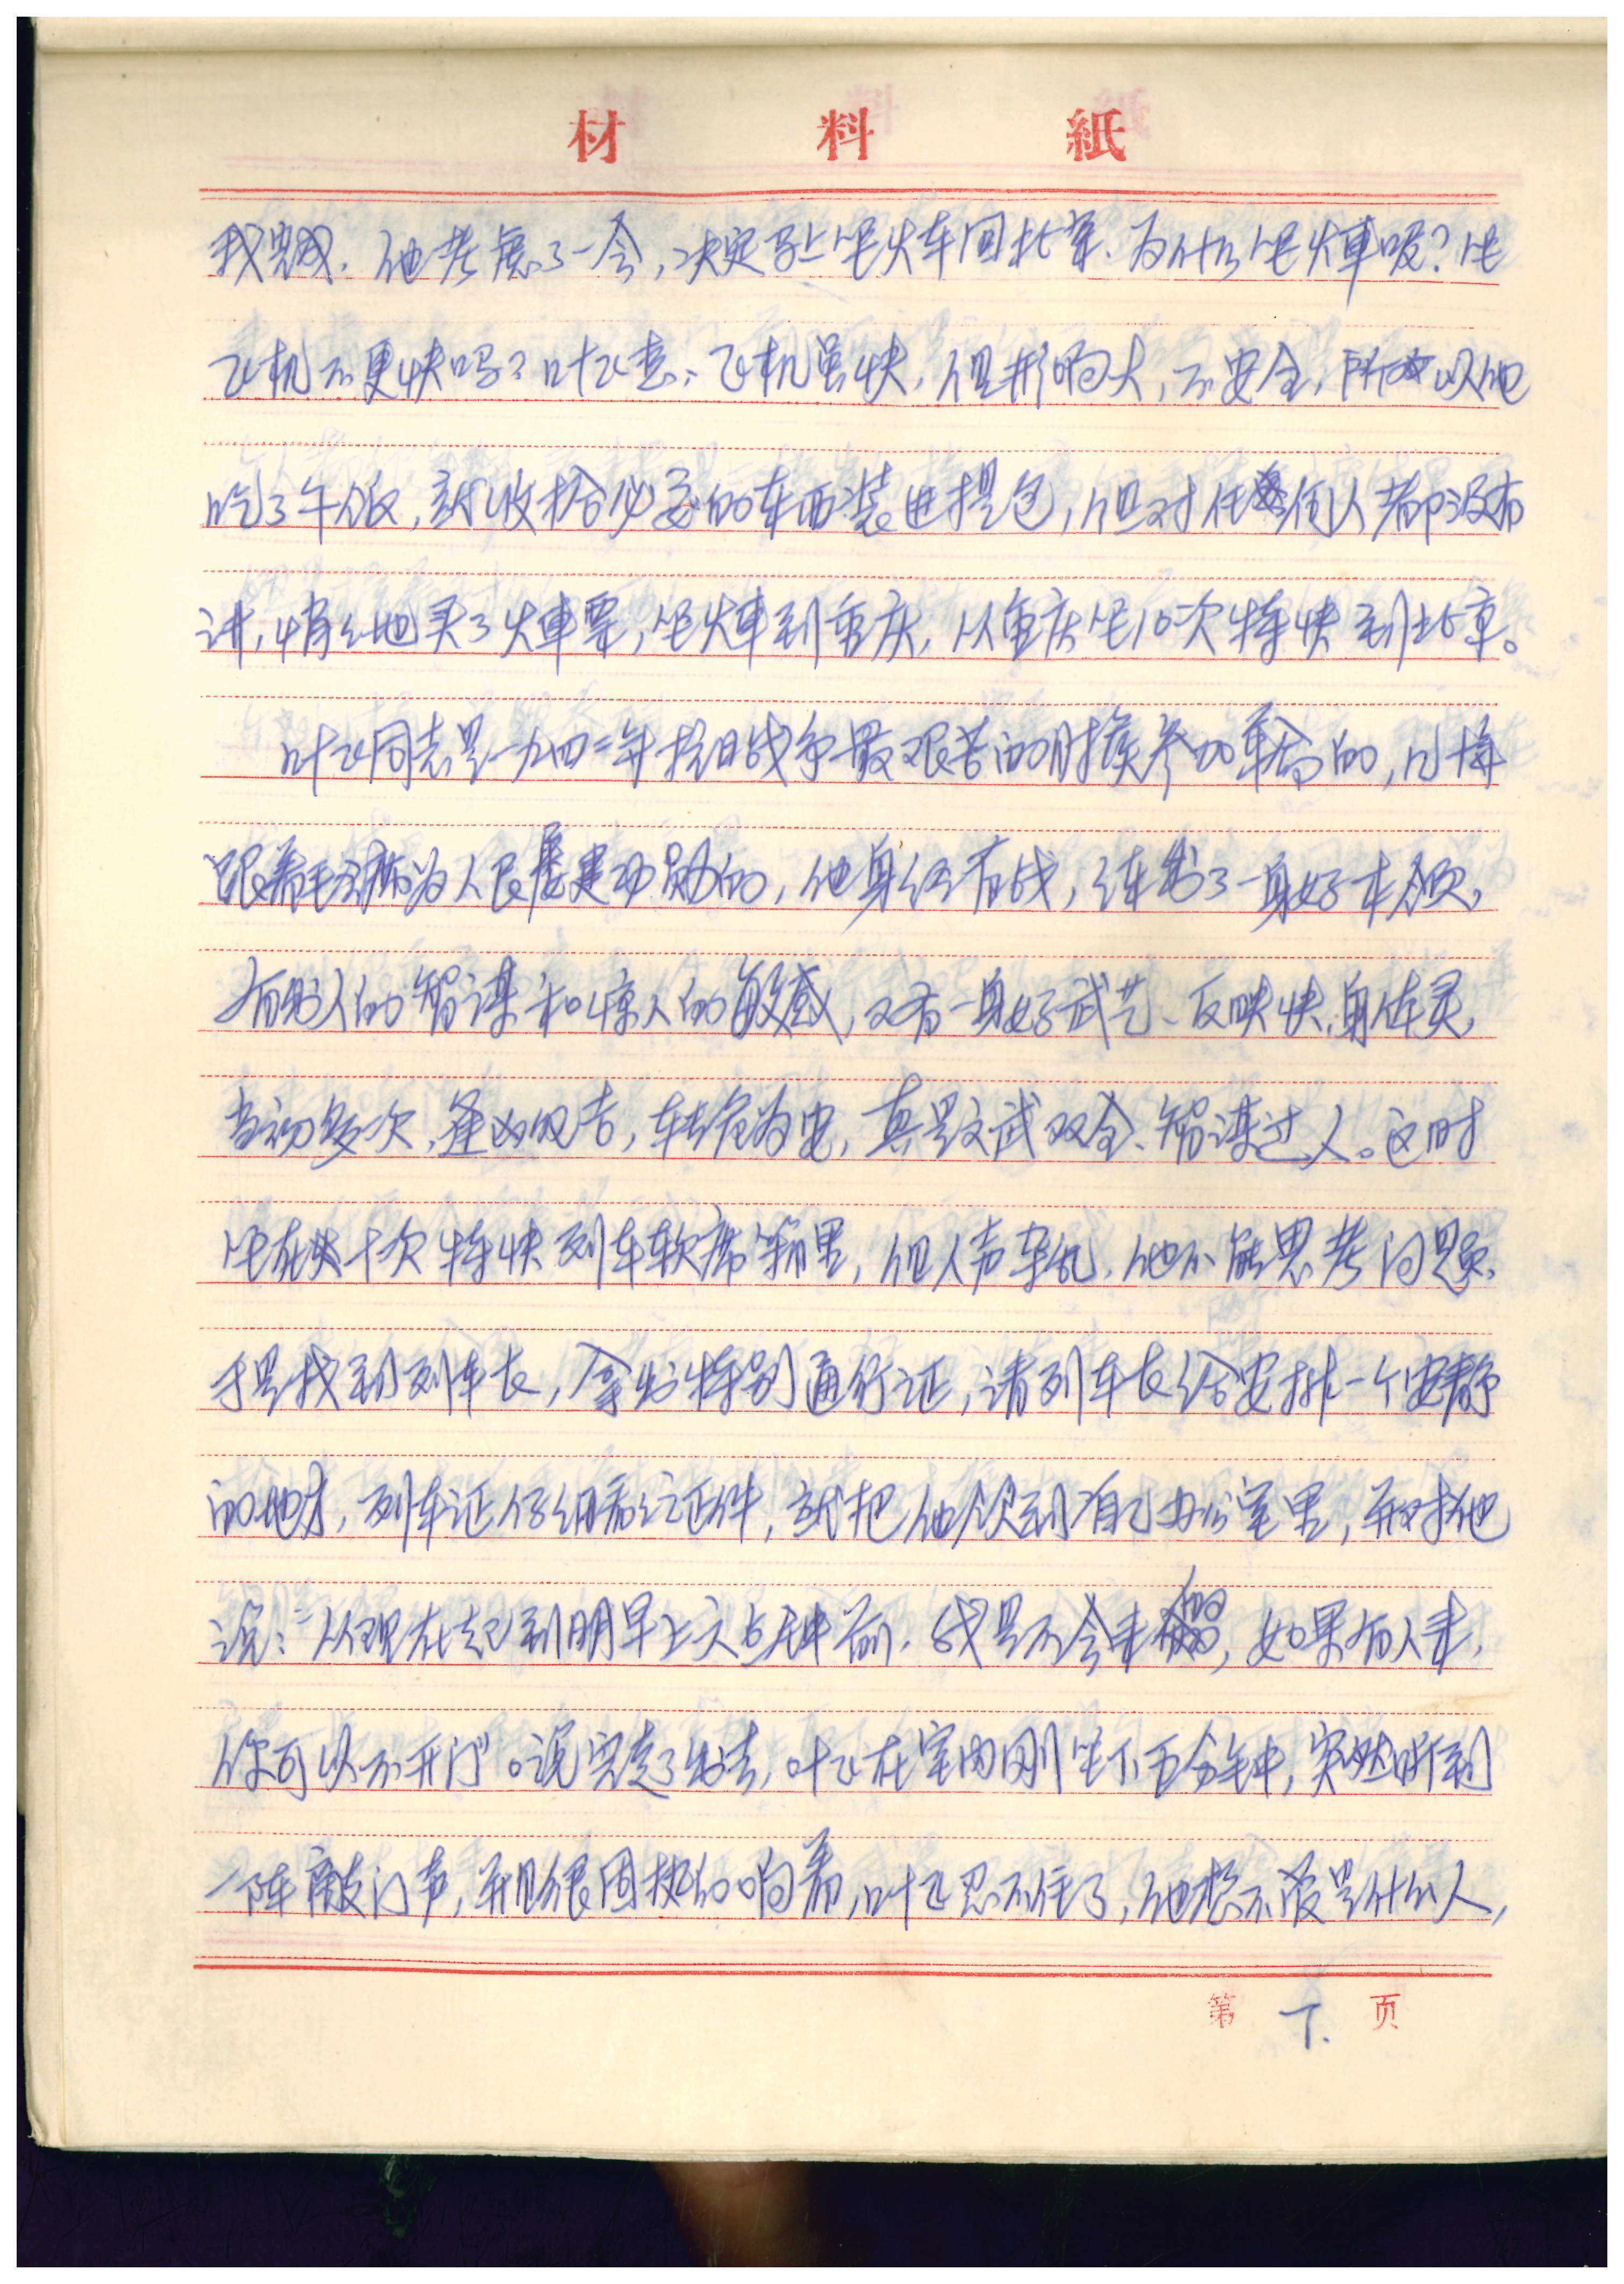 材料紙
我完成.他考虑了一会,决定马上坐火车回北京.为什么坐火車呢?坐
飞机不更快吗?叶飞想:飞机虽快,但影响大,不安全,所以他
吃了午饭,就收拾必要的东西装进提包,但对任何人都没有
讲,悄々地买了火車票,坐火車到重庆,从重庆坐10次特快到北京。
叶飞同志是一九四二年抗日战争最艰苦的时候参加革命的,
跟着毛主席为人民屡建功勋的,他身经百战,练出了一身好本领,
有出人的智谋和惊人的敏感,又有一身好武艺、反映快,身体灵,
当初多次,逢凶化吉,转危为安,真是文武双全、智谋过人。这时
坐在十次特快列车软席箱里,但人声杂乱,他不能思考问题,
于是找到列车长,拿出特别通行证,请列车长给安排一个安静
的地方,列车证仔细看了证件,就把他领到自己办公室里,并对他
说:“从现在起到明早上六点钟前.我是不会来的,如果有人来,
你可以不开门”。说完走了出去,叶飞在室内刚坐下五分钟,突然听到
一阵敲门声,并且很固执的响着,叶飞忍不住了,他想不管是什么人,
第 7. 页